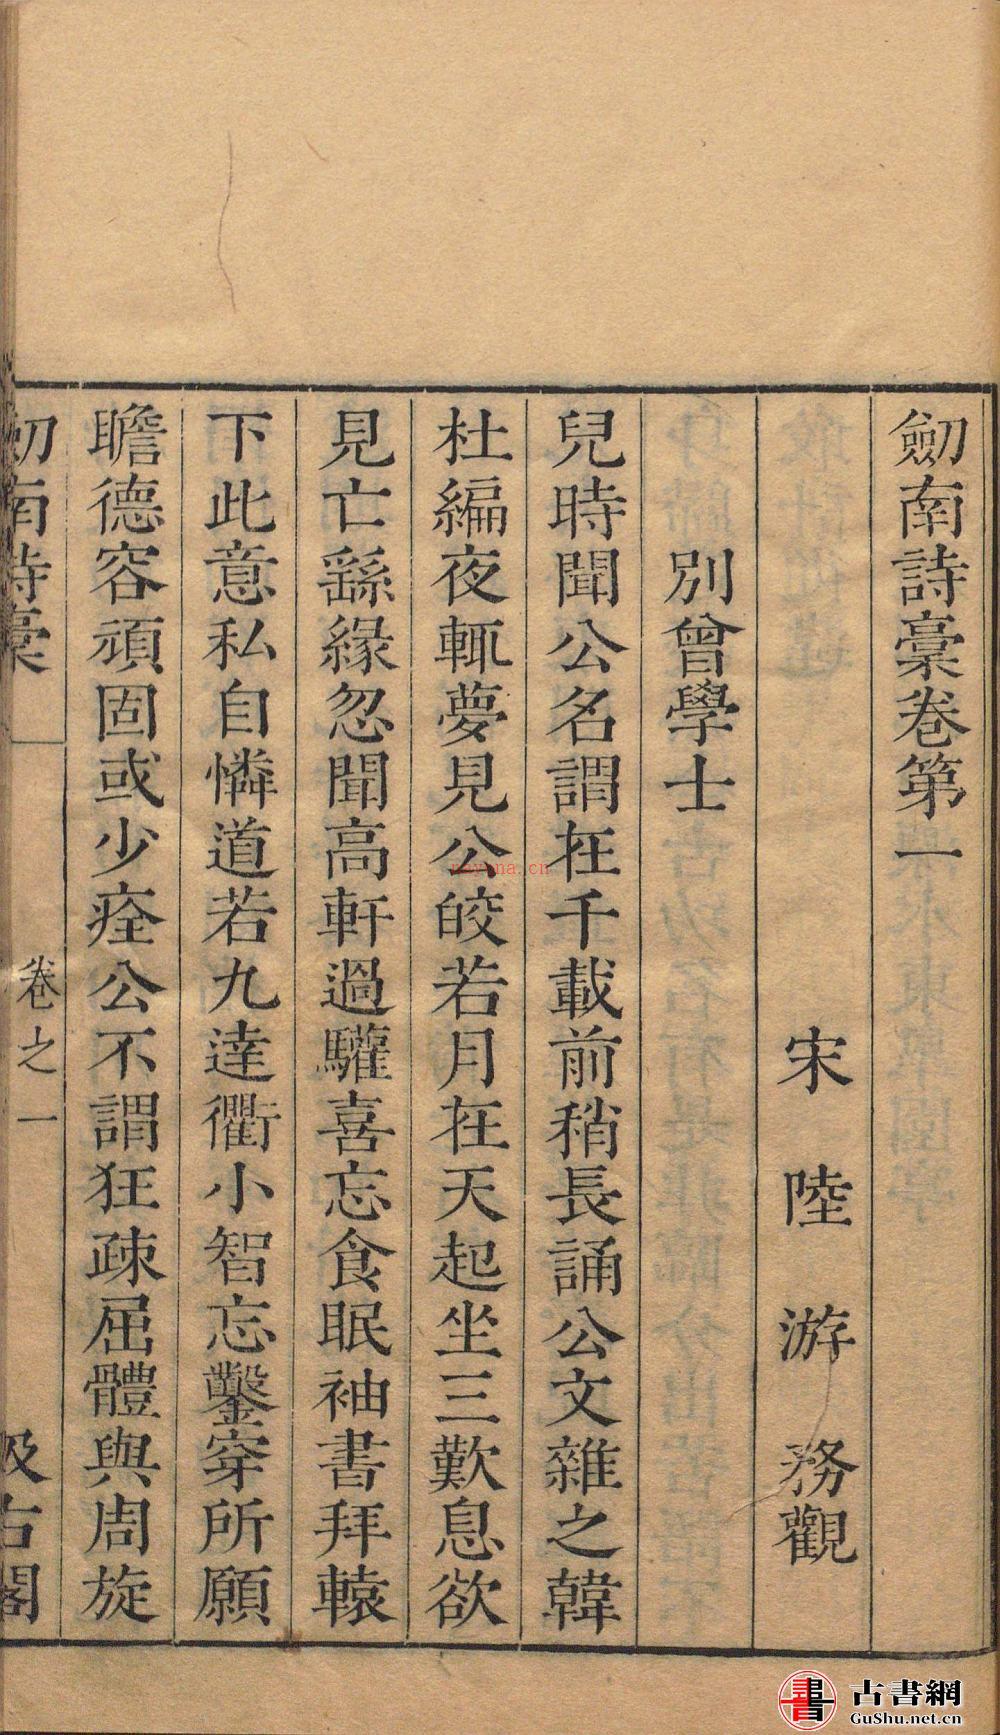 劒南詩稾卷第一
宋 陸 游 務觀
別曾學士
兒時聞公名謂在千載前稍長誦公文雜之韓
杜編夜輒夢見公皎若月在天起坐三歎息欲
見亡繇緣忽聞高軒過驩喜忘食眠袖書拜轅
下此意私自憐道若九逵衢小智忘鑿穿所願
瞻德容頑固或少痊公不謂狂疎屈體與周旋
劒南詩稾
卷之一
汲古閣
nayona.cn
古書網
GuShu.net.cn